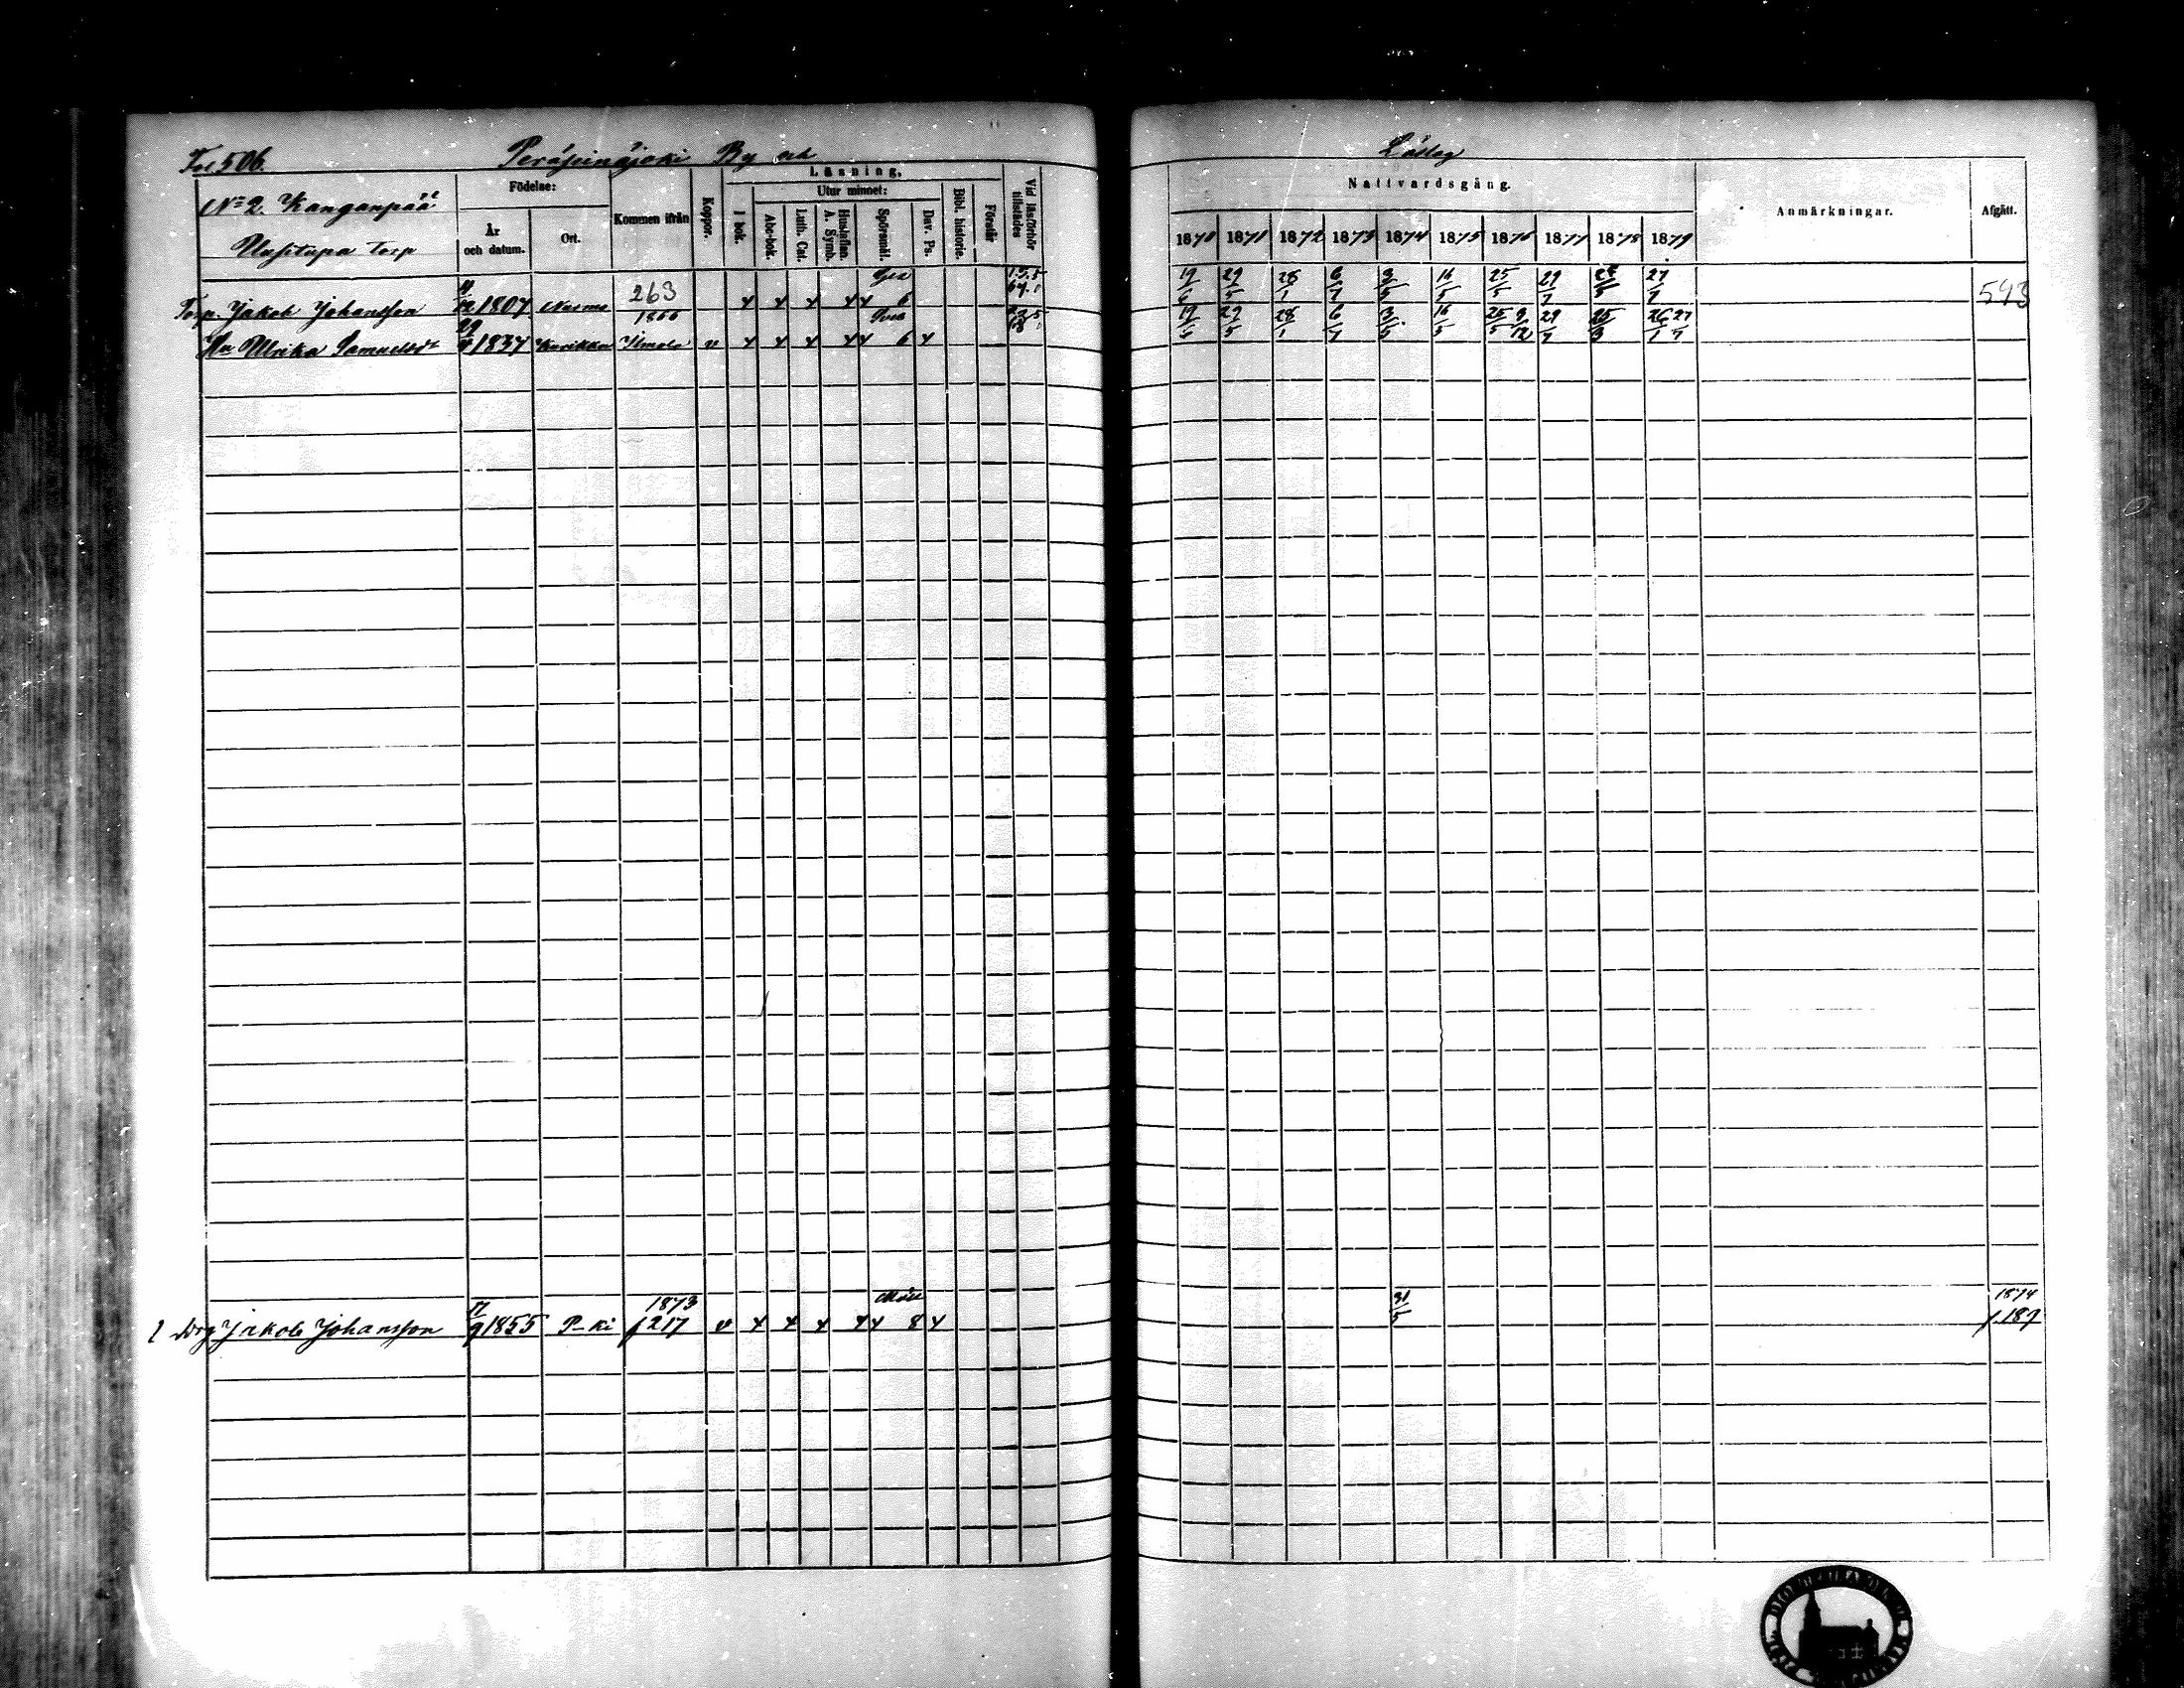 Fol 506. Peräseinäjoki By och Låtlag
No 2. Kanganpää
Uusitupa torp
Födelse:
År och datum.
Ort.
Kommen ifrån
Koppor.
Läsning.
I bok.
Utur minnet:
Abc-bok.
Luth. Cat.
Hustaflan. A. Symb.
Spörsmål.
Dav. Ps.
Bibl. historie.
Förstår
Vid läsförhör tillstädes
Nattvardsgång.
1870 1871 1872 1873 1874 1875 1876 1877 1878 1879
Anmärkningar.
Afgått.
Torp. Jakob Johansson 1807 263 4 4 4 4 4 6 19 29/5 28/1 6/7 3/5 16/5 25/5 29/7 27/7 543
Hu Ulrika Samuelsdr 29 1837 Kurikka 1866 Ilmola v 4 4 4 4 4 6 4 19 29/5 28/1 6/7 3/5 16/5 25/5 9/12 29/7 25/3 26/1 27/7
1 drg Jakob Johansson 17/9 1855 P-ki 1873 f 217 v 4 4 4 4 4 8 4 31/5 1874 f. 187